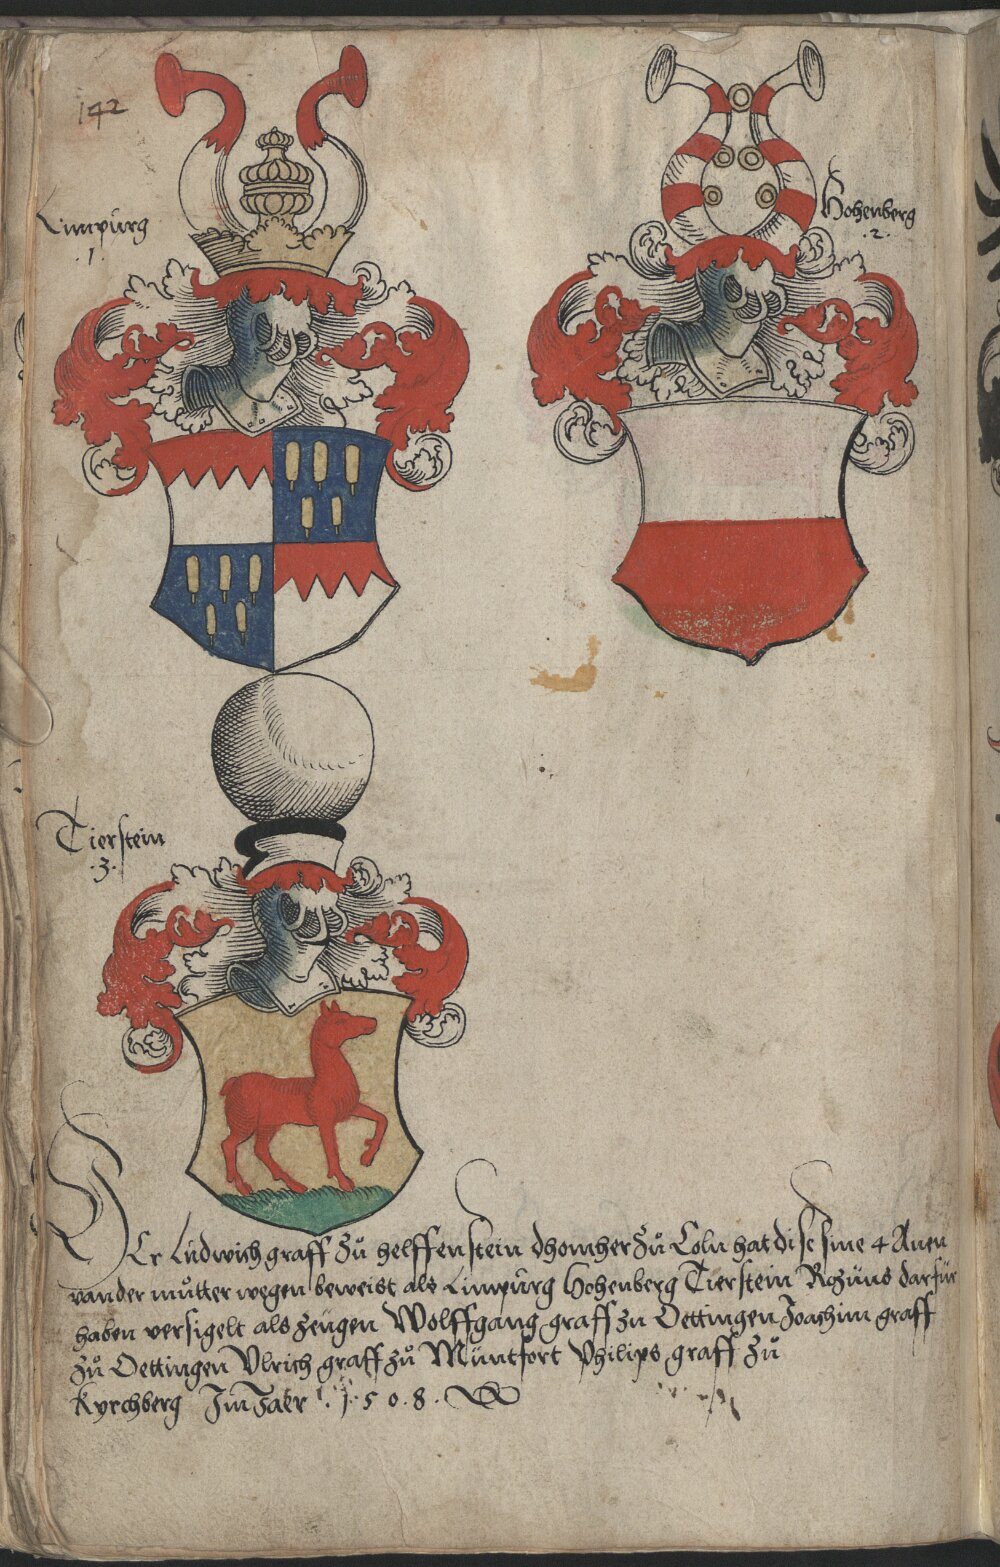 142
Limpurg
.1.
Hohenberg
.2.
Tierstein
.3.
Der Ludwich graff zů helffenstein dhomher zů Coln hat dise sine 4 Anen
van der můtter wegen beweist als Limpurg Hohenberg Tierstein Rozüns darfür
haben versigelt als zeugen Wolffgang graff zu Oettingen Joachim graff
zů Oettingen Vlrich graff zů Müntfort Philips graff zů
Kyrchberg Im Jaer .1.5 0.8.